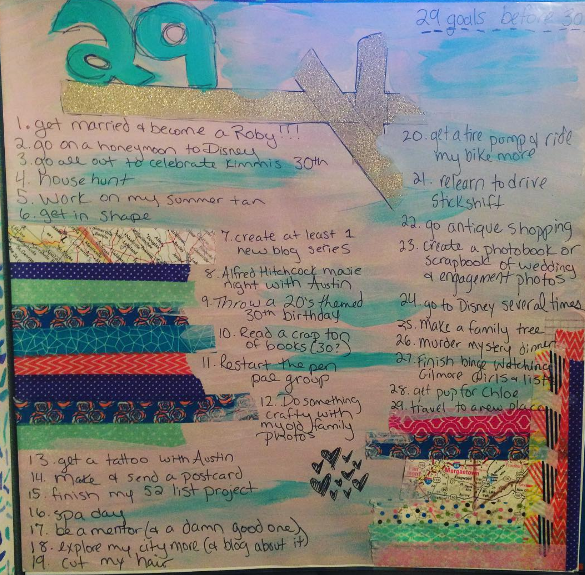 29
29 goals before 30
1. get married & become a Roby!!!
2. go on a honeymoon to Disney
3. go all out to celebrate Kimmis 30th
4. house hunt
5. work on my summer tan
6. get in shape
7. create at least 1
new blog series
8. Alfred Hitchcock movie
night with Austin
9. Throw a 20's themed
30th birthday
10. Read a crap ton
of books (30?)
11. Restart the pen
pal group
12. Do something
crafty with
my old family
photos
13. get a tattoo with Austin
14. make & send a postcard
15. finish my 52 list project
16. spa day
17. be a mentor (& a damn good one)
18. explore my city more (& blog about it)
19. cut my hair
20. get a tire pump & ride
my bike more
21. relearn to drive
stickshift
22. go antique shopping
23. create a photobook or
scrapbook of wedding
& engagement photos
24. go to Disney several times
25. Make a family tree
26. murder mystery dinner
27. Finish binge watching
Gilmore Girls & list
28. art pup for Chloe
29. travel to a new place
Morgantown